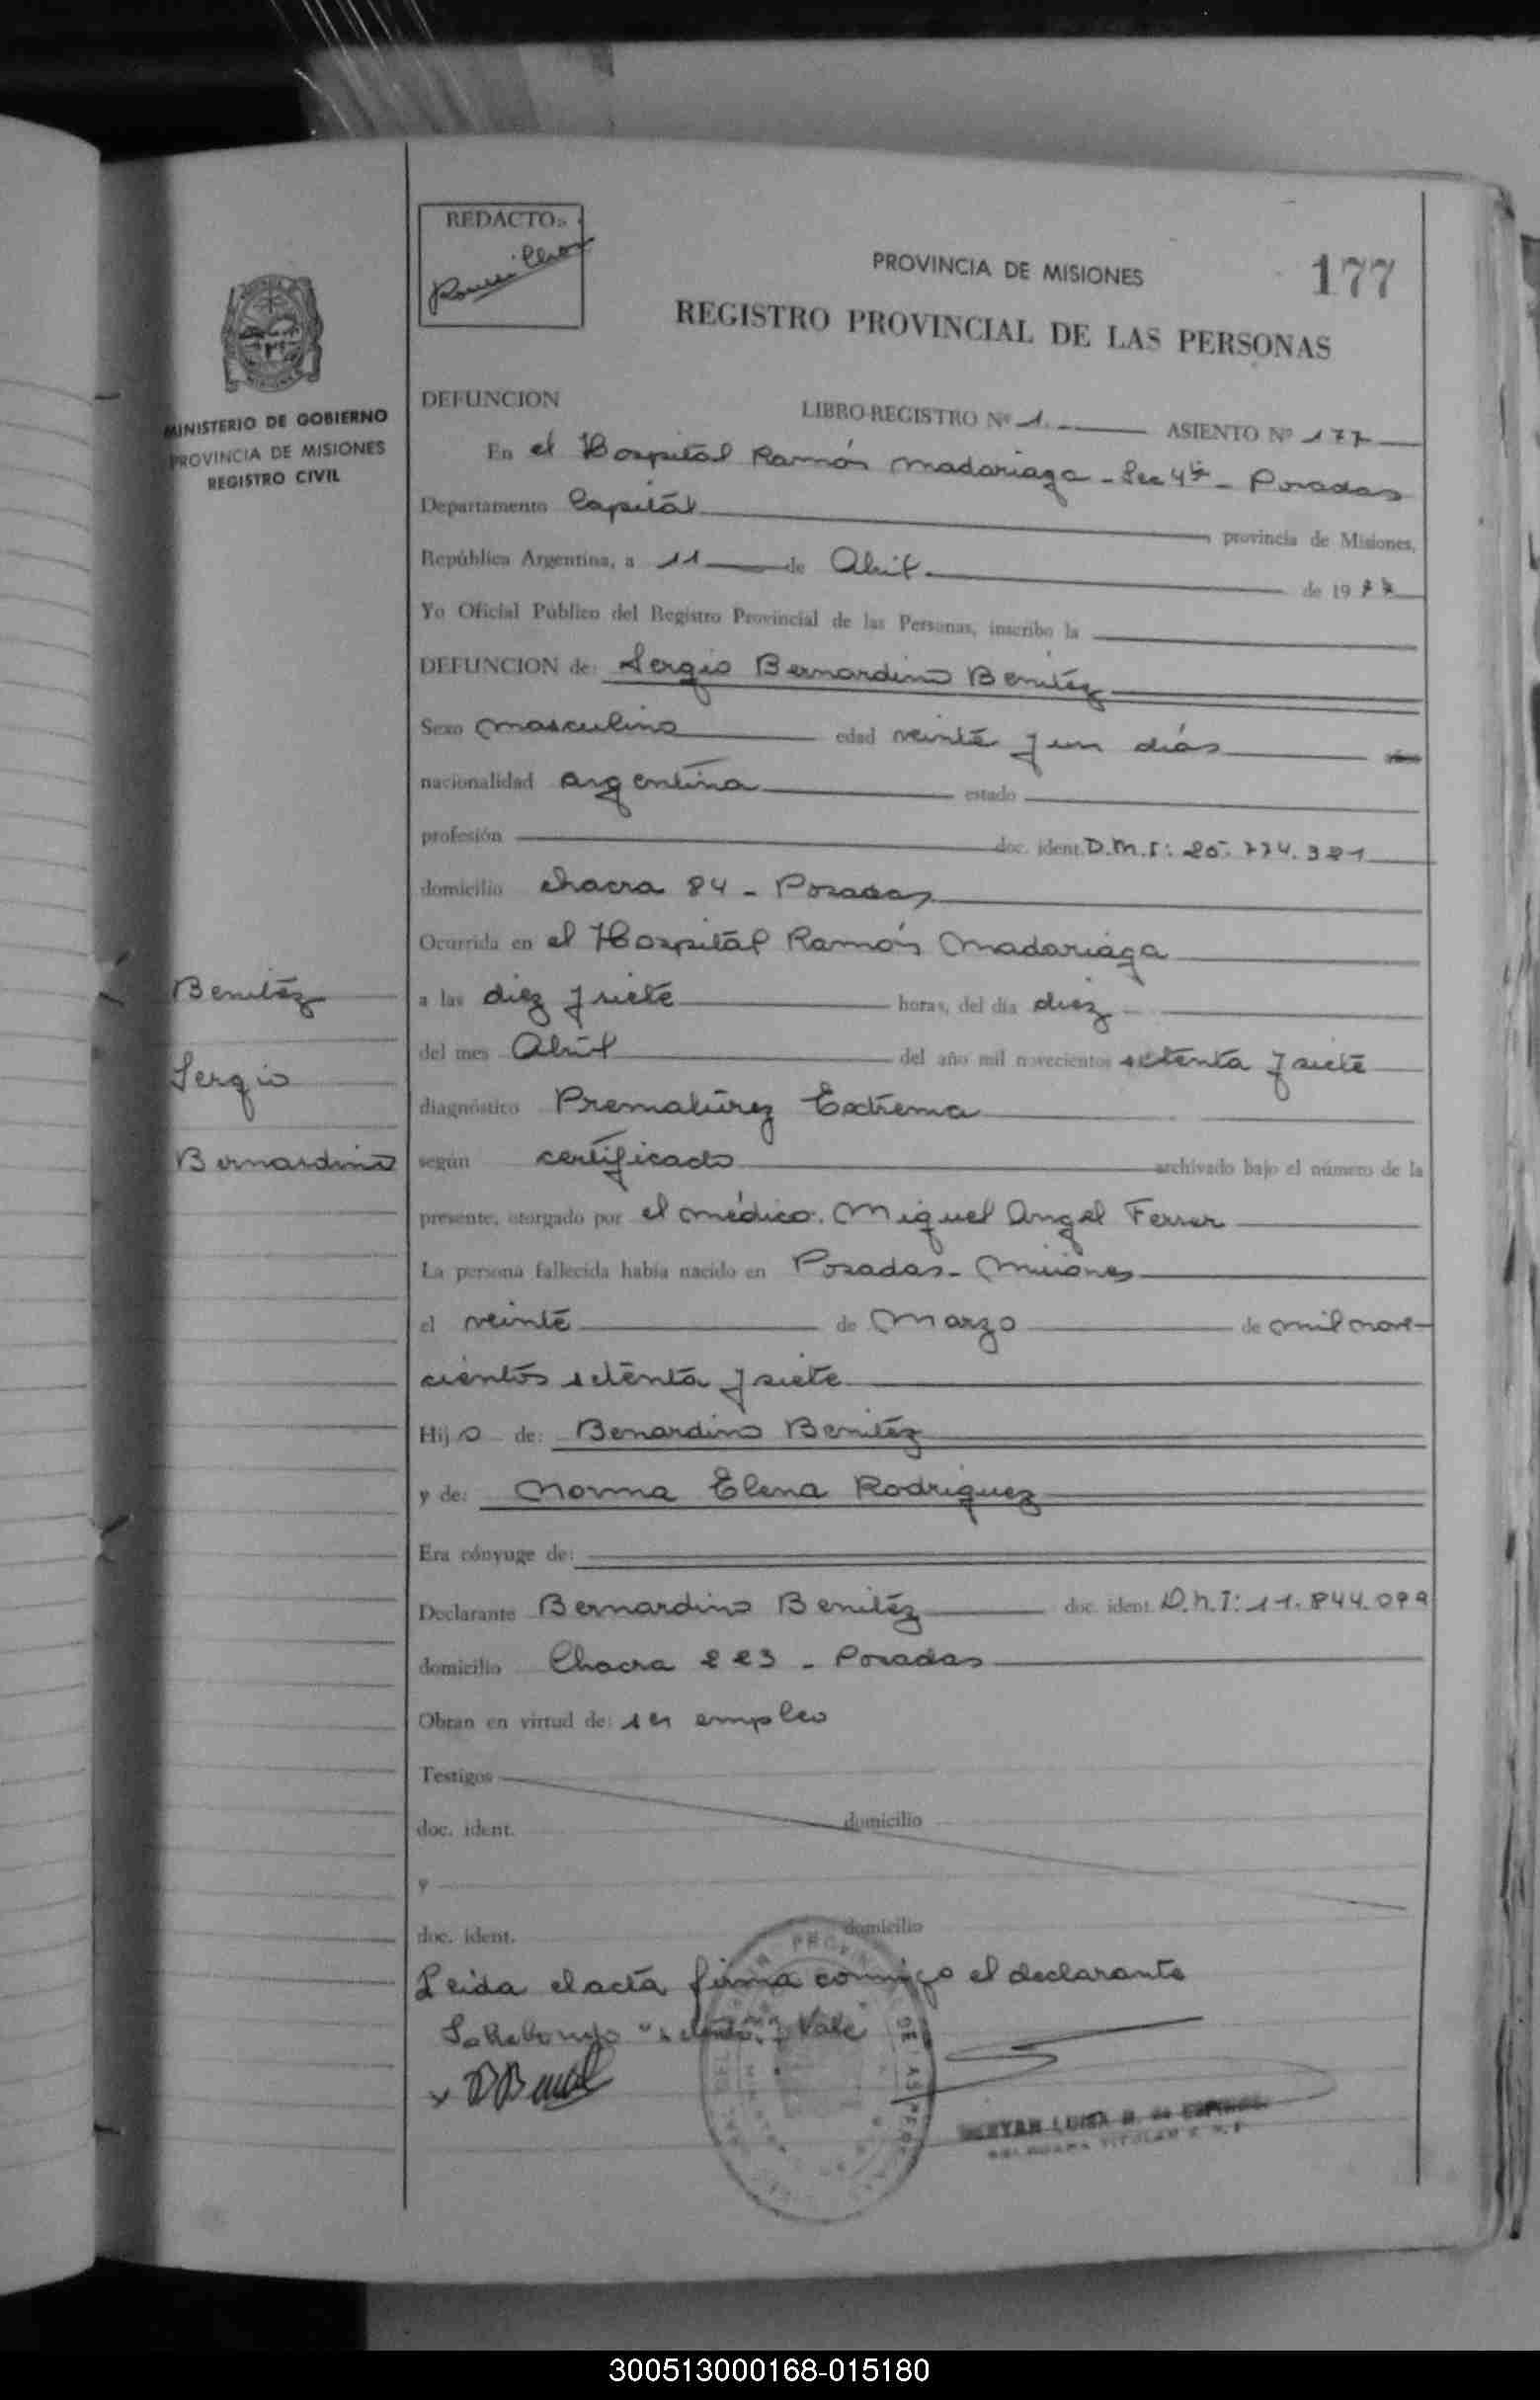 REDACTO:
PROVINCIA DE MISIONES
177
REGISTRO PROVINCIAL DE LAS PERSONAS
MINISTERIO DE GOBIERNO
PROVINCIA DE MISIONES
REGISTRO CIVIL
DEFUNCION LIBRO-REGISTRO Nº 1. ASIENTO Nº 177
En el Hospital Ramón Madariaga - Sec 4ª - Posadas
Departamento Capital provincia de Misiones,
República Argentina, a 11 de Abril de 1977
Yo Oficial Público del Registro Provincial de las Personas, inscribo la
DEFUNCION de: Sergio Bernardino Benitéz
Sexo Masculino edad veinte y un días
nacionalidad argentina estado
profesión doc. ident. D.M.I: 25.774.321
domicilio chacra 84 - Posadas
Ocurrida en el Hospital Ramón Madariaga
a las diez y siete horas, del día diez
del mes Abril del año mil novecientos setenta y siete
diagnóstico Prematúrez Extrema
según certificado archivado bajo el número de la
presente, otorgado por el médico. Miguel Angel Ferrer
La persona fallecida había nacido en Posadas - Misiones
el veinte de Marzo de mil nove-
cientos setenta y siete
Hijo de: Benardino Benitéz
y de: Norma Elena Rodriguez
Era cónyuge de:
Declarante Bernardino Benitéz doc. ident. D.N.I: 11.844.099
domicilio Chacra 223 - Posadas
Obran en virtud de: su empleo
Testigos
doc. ident. domicilio
y
doc. ident. domicilio
Leida el acta firma conmigo el declarante
Vale
Benitéz
Sergio
Bernardino
300513000168-015180